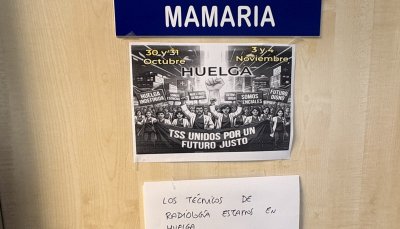 MAMARIA
30 y 31
Octubre
3 y 4
Noviembre
HUELGA
HUELGA
INDEFINIDA
SOMOS
ESENCIALES
FUTURO
DIGNO
TSS UNIDOS POR UN
FUTURO JUSTO
LOS TÉCNICOS DE
RADIOLOGÍA ESTAMOS EN
HUELGA